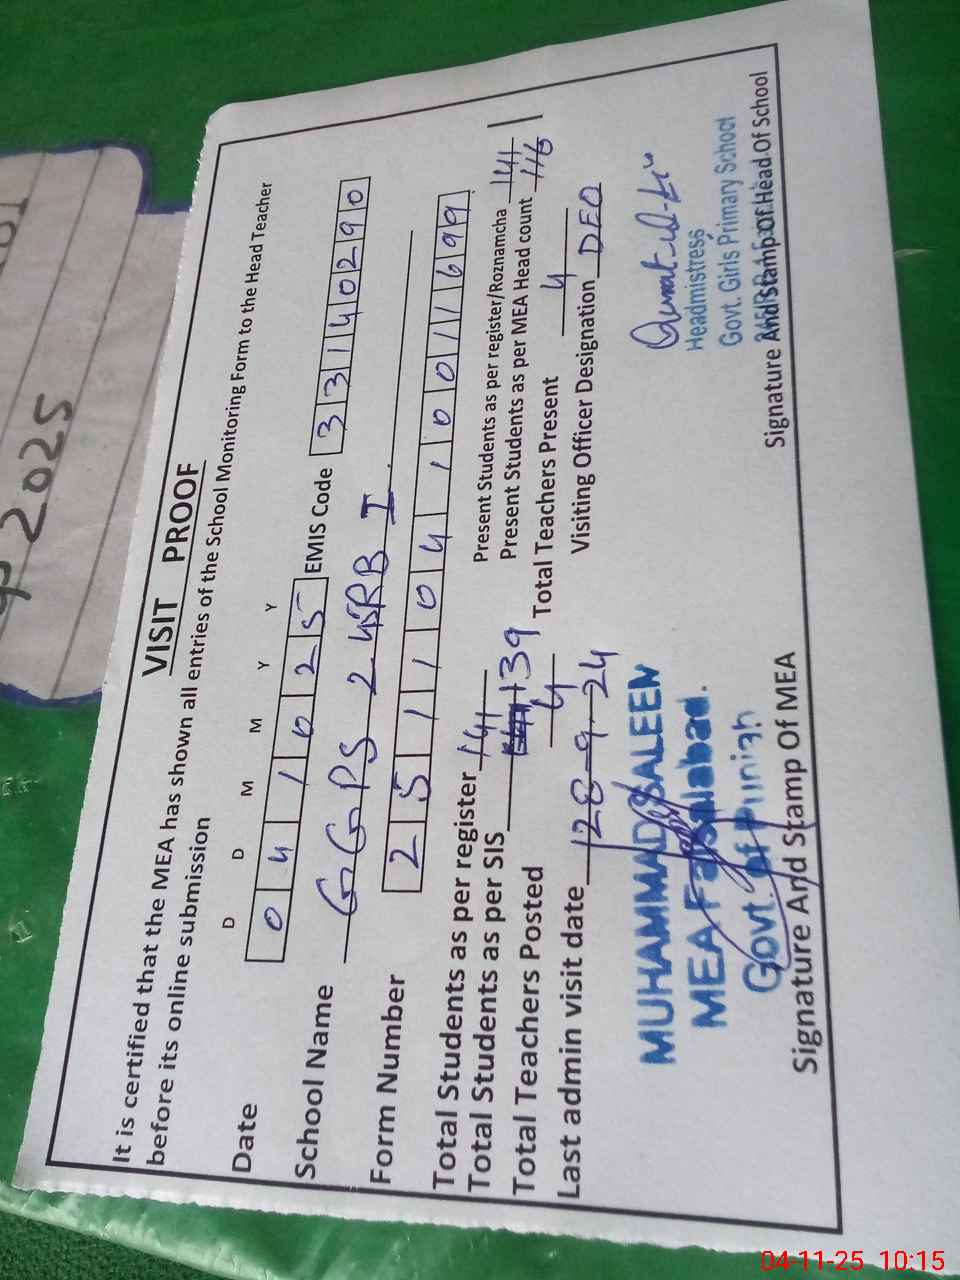 2025
VISIT PROOF
It is certified that the MEA has shown all entries of the School Monitoring Form to the Head Teacher
before its online submission
D D M M Y Y
Date 0 4 1 0 2 5 EMIS Code 3 3 1 4 0 2 9 0
School Name GGPS 245RB I
Form Number 2 5 1 1 0 4 1 0 0 1 1 6 9 9
Total Students as per register 141 Present Students as per register/Roznamcha 141
Total Students as per SIS 139 Present Students as per MEA Head count 116
Total Teachers Posted 4 Total Teachers Present 4
Last admin visit date 28-9-24 Visiting Officer Designation DEO
MUHAMMAD SALEEM
MEA Faisalabad.
Govt. of Punjab
Signature And Stamp Of MEA
Headmistress
Govt. Girls Primary School
Signature And Stamp Of Head Of School
04-11-25 10:15